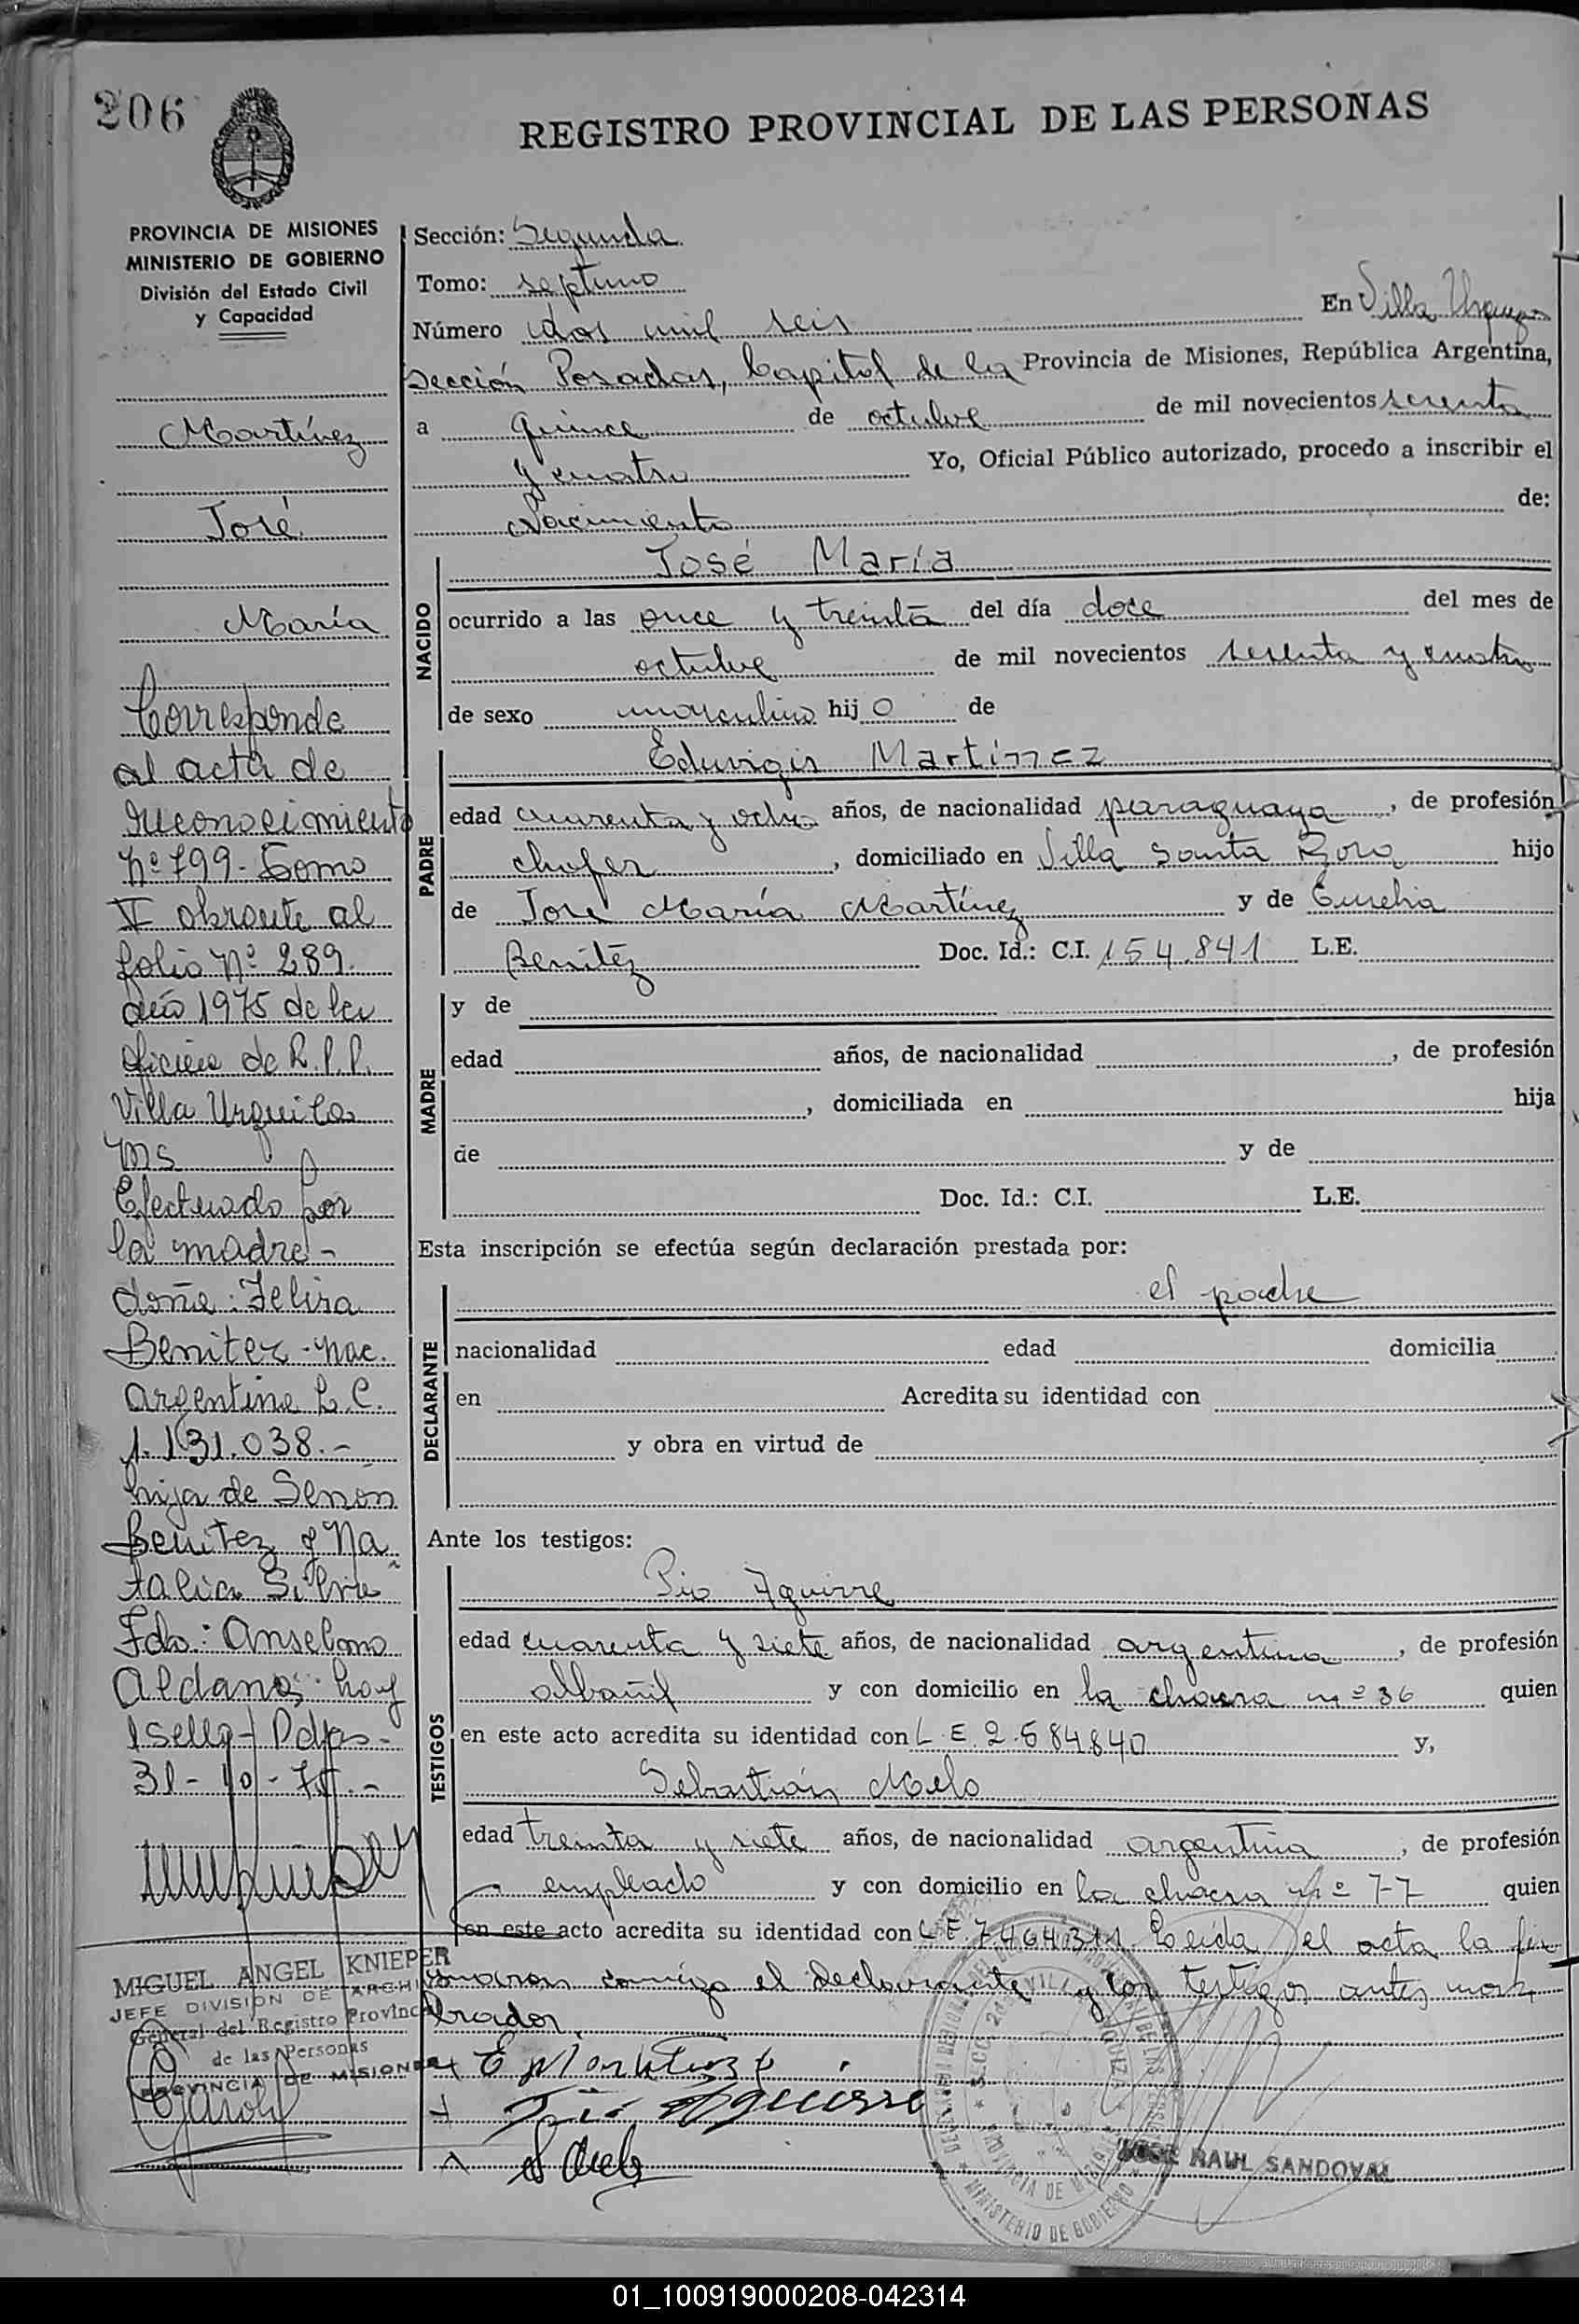 206
REGISTRO PROVINCIAL DE LAS PERSONAS
PROVINCIA DE MISIONES
MINISTERIO DE GOBIERNO
División del Estado Civil
y Capacidad
Martínez
José
María
Corresponde
al acta de
reconocimiento
Nº 799 - Tomo
V obrante al
folio Nº 289.
año 1975 de la
oficina de R.P.P.
Villa Urquiza
Ms
Efectuado por
la madre -
doña: Felisa
Benitez - nac.
argentina L.C.
1.131.038.-
hija de Senón
Benitez y Na
talicia Silva
Fdo: Anselmo
Aldana; hoy
Pdas -
31-10-75.-
MIGUEL ANGEL KNIEPER
JEFE DIVISION DE ARCHI
General del Registro Provincial
de las Personas
PROVINCIA DE MISIONES
Sección: Segunda
Tomo: septimo
Número dos mil seis En Villa Urquiza
Sección Posadas, Capital de la Provincia de Misiones, República Argentina,
a quince de octubre de mil novecientos sesenta
y cuatro Yo, Oficial Público autorizado, procedo a inscribir el
Nacimiento de:
NACIDO
José María
ocurrido a las once y treinta del día doce del mes de
octubre de mil novecientos sesenta y cuatro
de sexo masculino hijo de
PADRE
Eduvigis Martínez
edad cuarenta y ocho años, de nacionalidad paraguaya, de profesión
chofer, domiciliado en Villa Santa Rosa hijo
de José María Martínez y de
Benítez Doc. Id.: C.I. 154.841 L.E.
MADRE
y de
edad años, de nacionalidad , de profesión
, domiciliada en hija
de y de
Doc. Id.: C.I. L.E.
Esta inscripción se efectúa según declaración prestada por:
DECLARANTE
el padre
nacionalidad edad domicilia
en Acredita su identidad con
y obra en virtud de
Ante los testigos:
TESTIGOS
Pio Aguirre
edad cuarenta y siete años, de nacionalidad argentina, de profesión
albañil y con domicilio en la chacra nº 36 quien
en este acto acredita su identidad con L.E. 2.584.840 y,
Sebastián Melo
edad treinta y siete años, de nacionalidad argentina, de profesión
empleado y con domicilio en la chacra nº 77 quien
en este acto acredita su identidad con L.E. 7.464.311 Leída el acta la fir
maron conmigo el declarante y los testigos antes nom
brados.
E Martinez
Pio Aguirre
S Melo
JOSE RAUL SANDOVAL
MINISTERIO DE GOBIERNO
PROVINCIA DE MISIONES
01_100919000208-042314